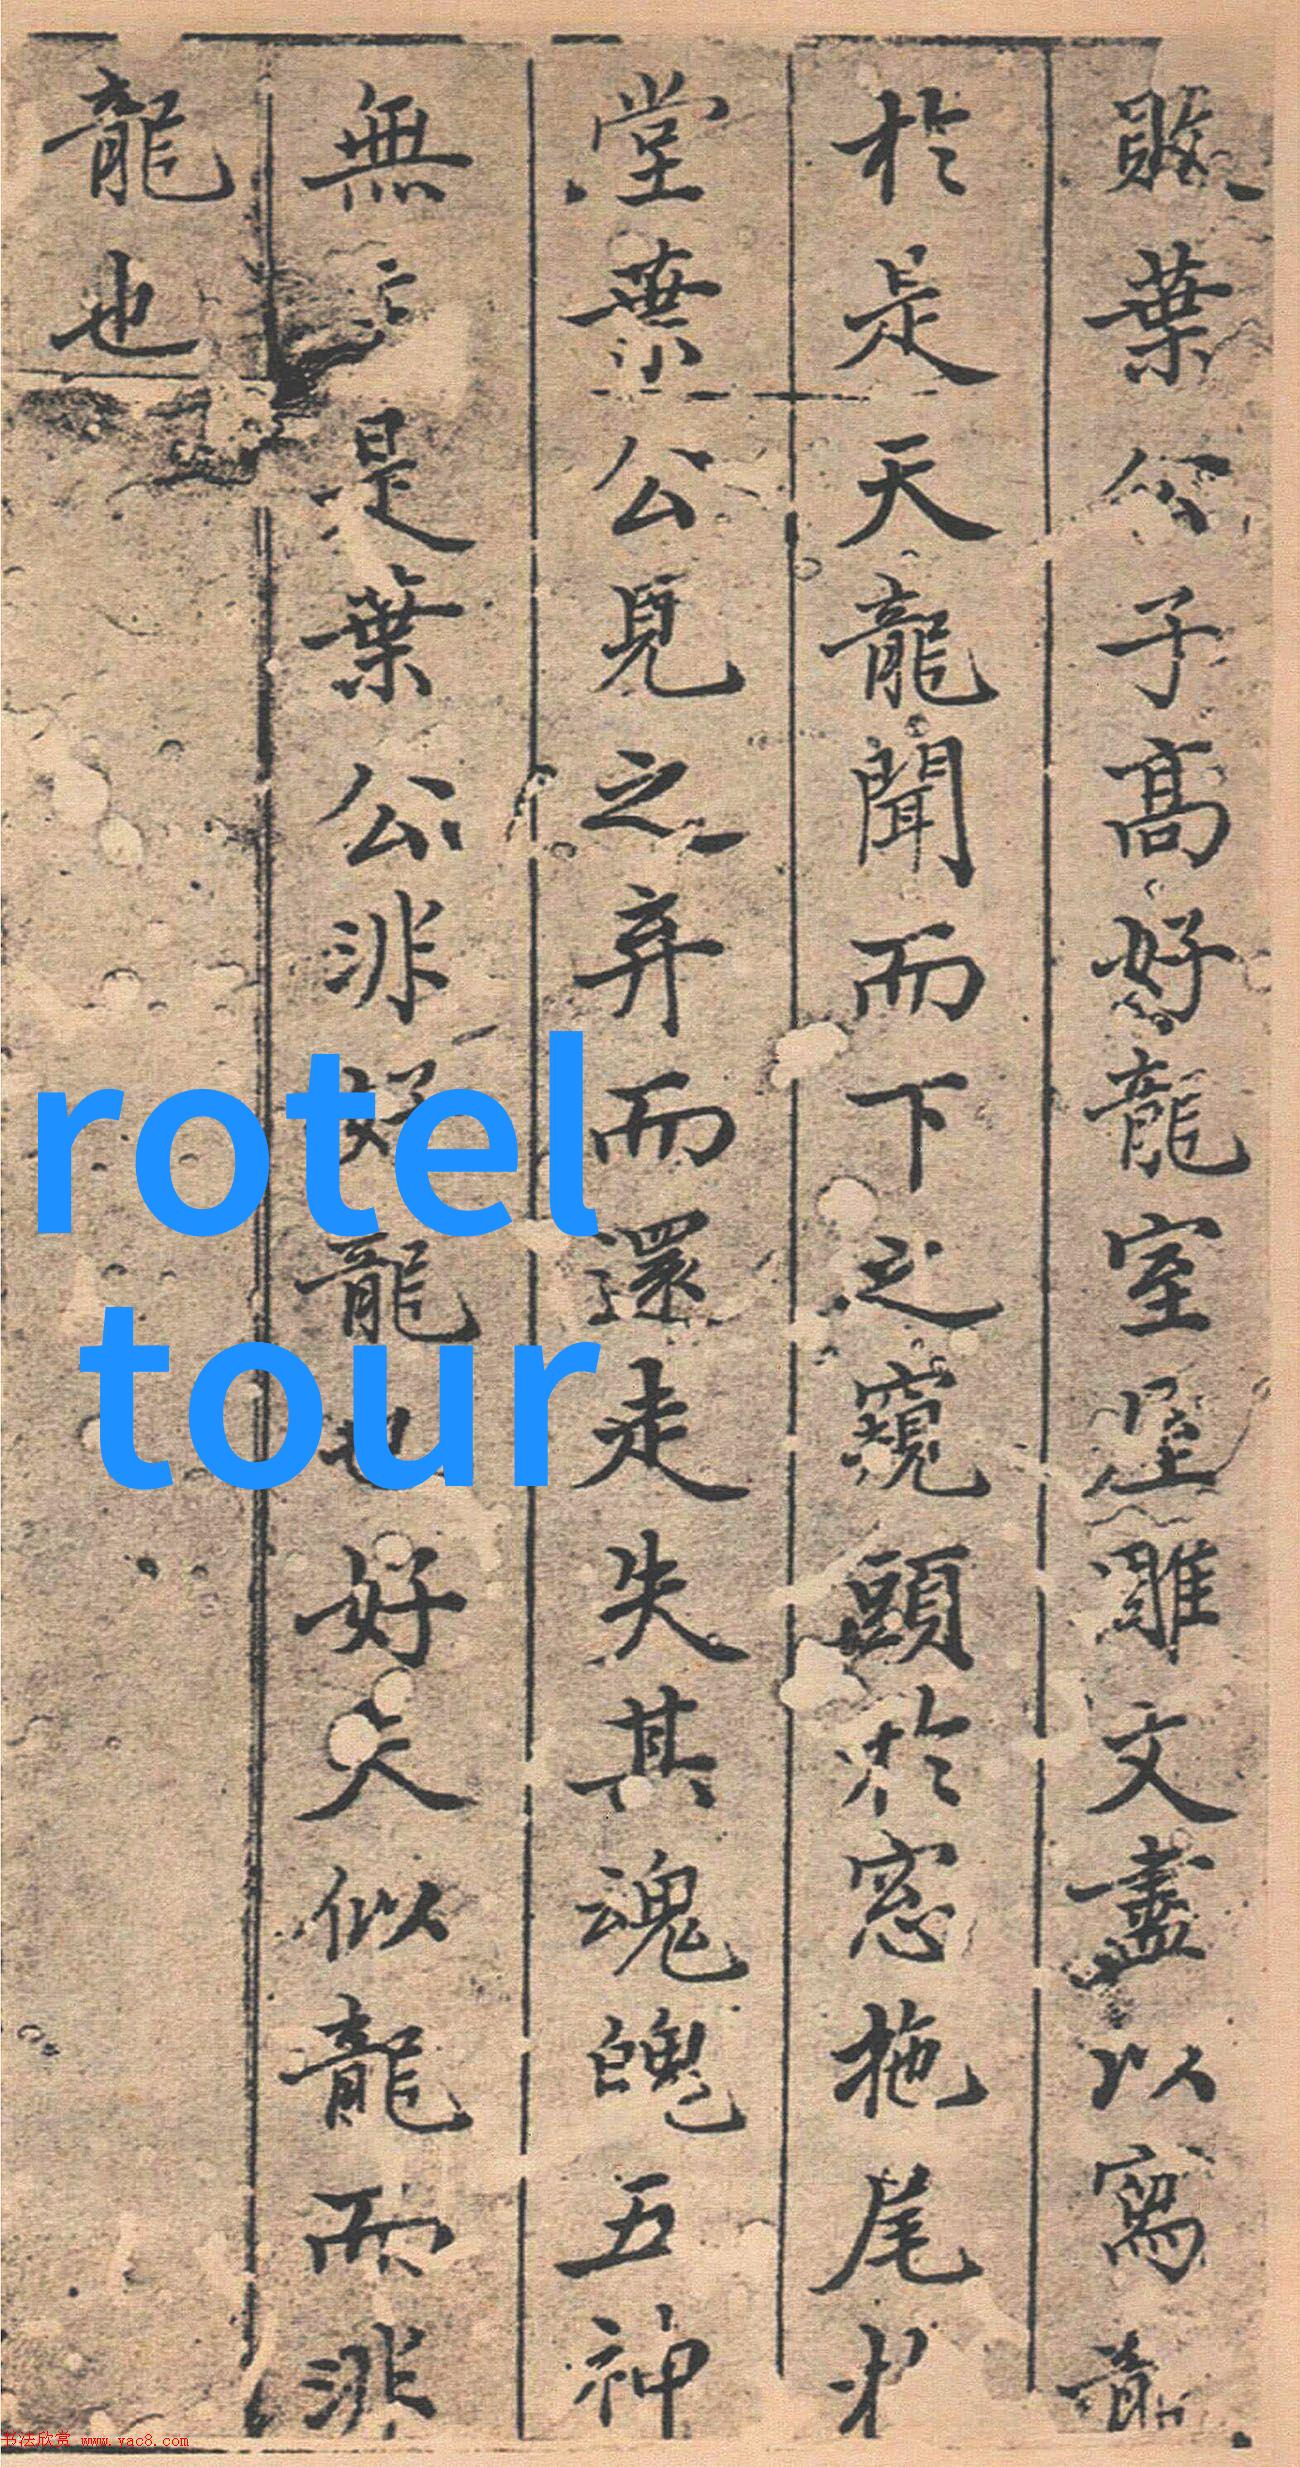 敗葉公子高好龍室屋雕文盡以寫龍
於是天龍聞而下之窺頭於窓拖尾於
堂葉公見之弃而還走失其魂魄五神
無主是葉公非好龍也好夫似龍而非
龍也
rotel
tour
书法欣赏 www.yac8.com